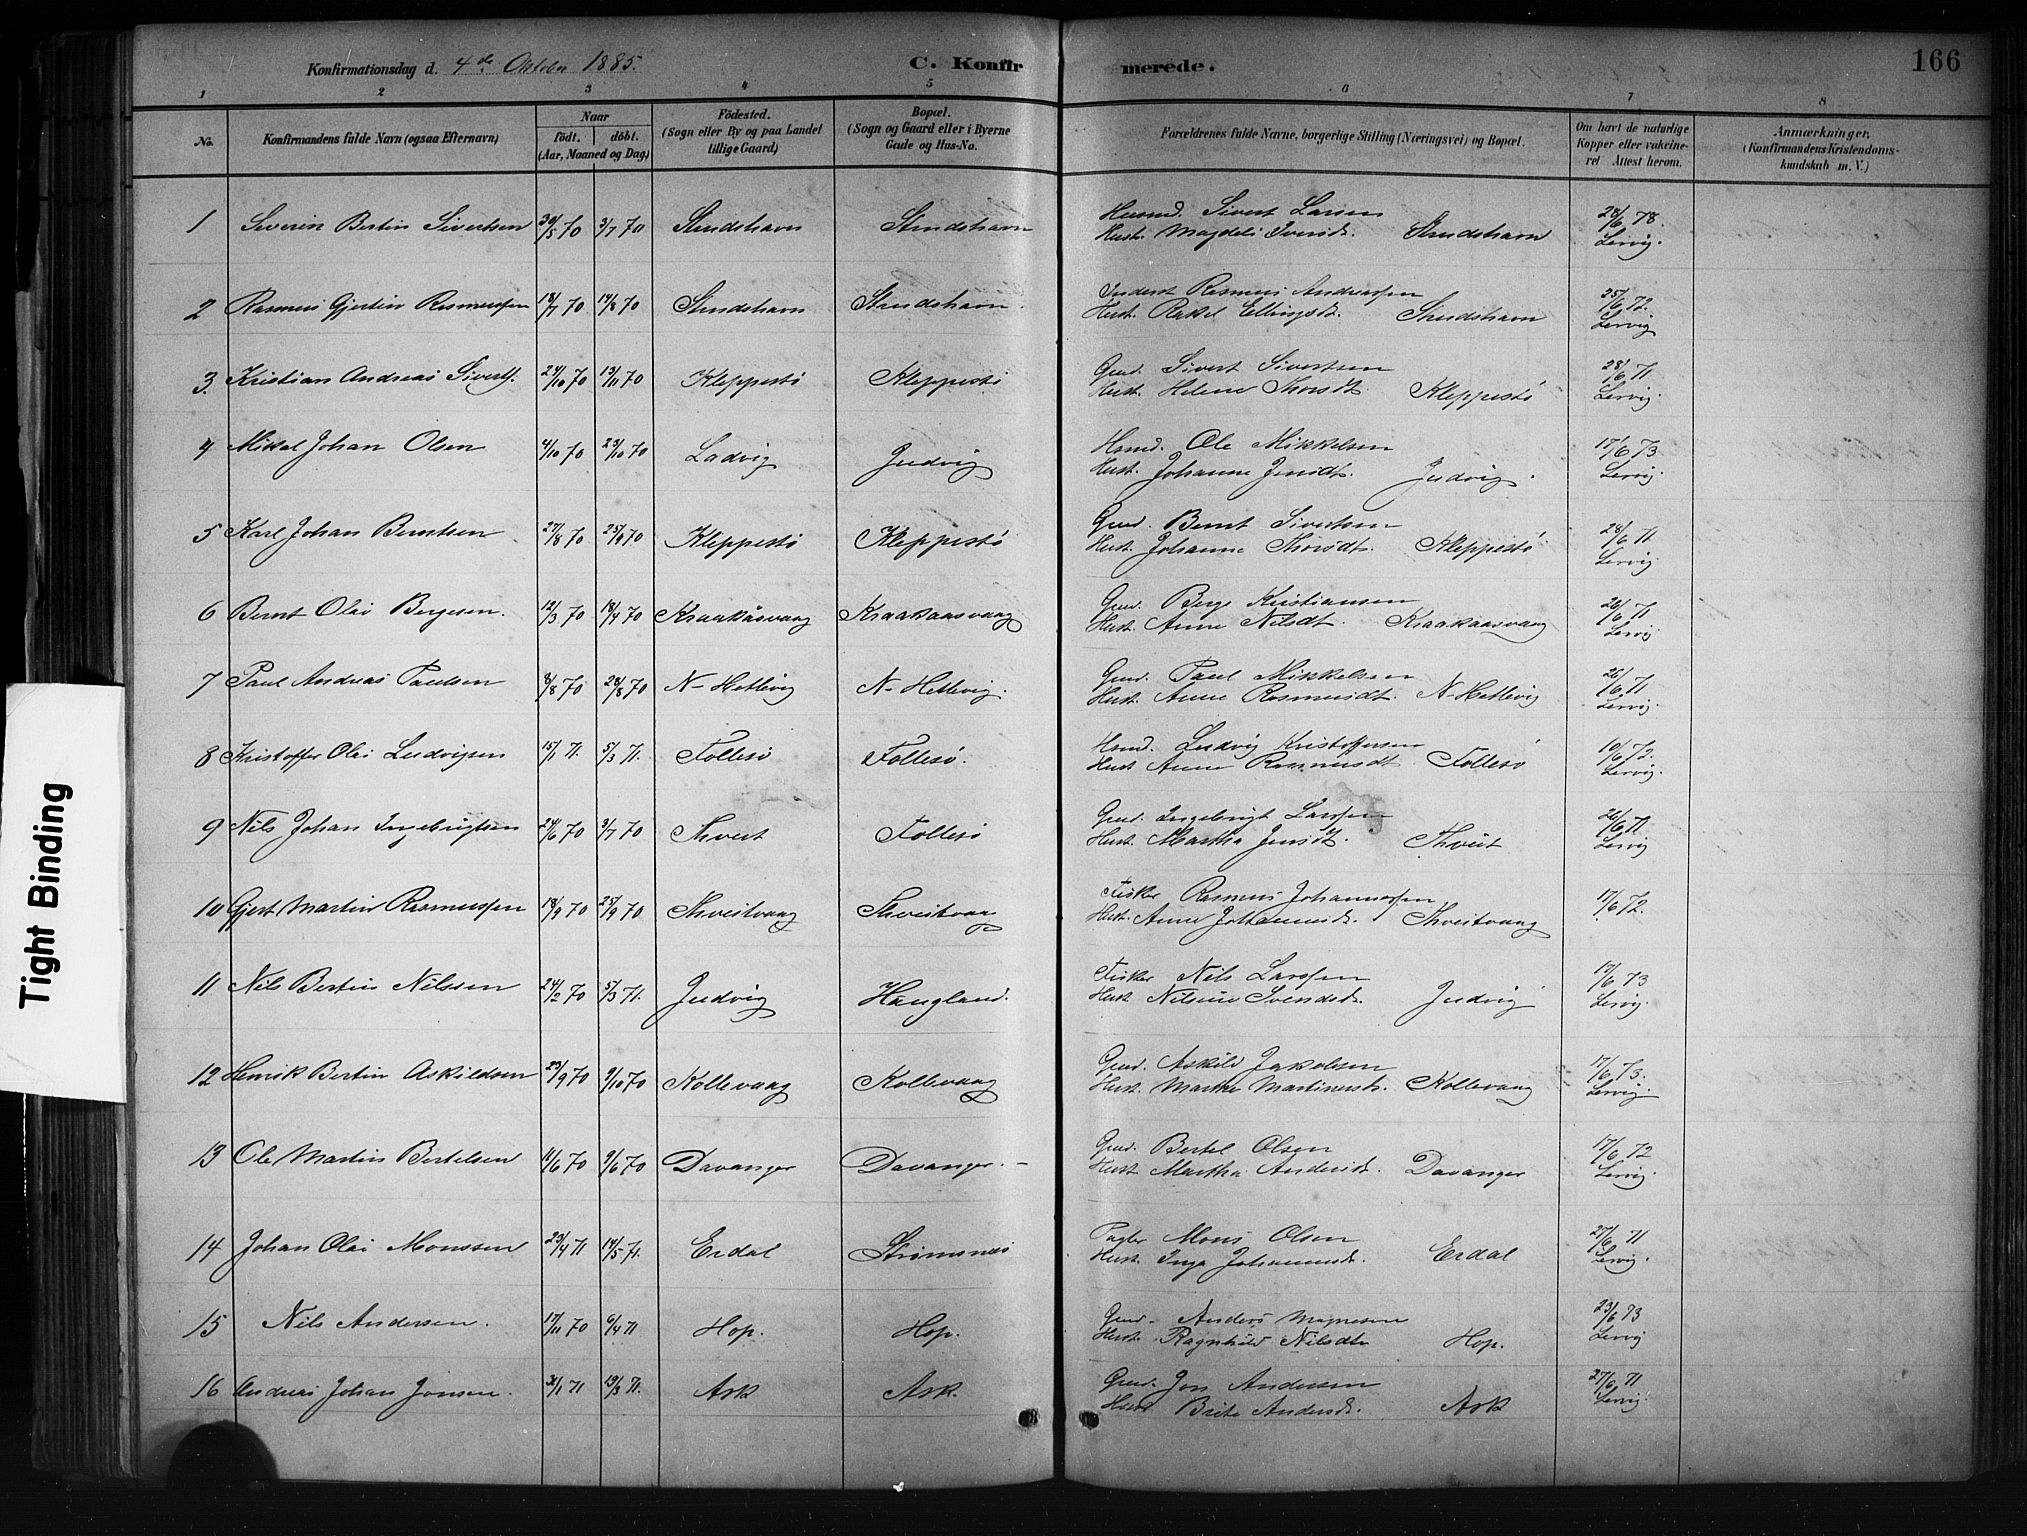 Konfirmationsdag d. 4de Oktober 1885.
C. Konfirmerede.
166
1 2 3 4 5 6 7 8
No.
Konfirmandens fulde Navn (ogsaa Efternavn)
Naar
födt. döbt.
(Aar, Maaned og Dag)
Födested.
(Sogn eller By og paa Landet
tillige Gaard)
Bopæl.
(Sogn og Gaard eller i Byerne
Gade og Hus-No.
Forældrenes fulde Navne, borgerlige Stilling (Næringsvei) og Bopæl.
Om havt de naturlige
Kopper eller vakcine-
ret Attest herom.
Anmærkninger.
(Konfirmandens Kristendoms-
kundskab m. V.)
1 Severin Bertin Sivertsen 30/5 70 3/7 70 Strudshavn Strudshavn
Husmd. Sivert Larsen
Hust. Magdeli Iversdt. Strudshavn
28/6 78.
Lervig.
2 Rasmus Gjertin Rasmussen 18/7 70 14/8 70 Strudshavn Strudshavn.
Inderst Rasmus Andreassen
Hust. Rakel Ellingsdt. Strudshavn
25/6 72.
Lervig
3. Kristian Andreas Siverts. 24/10 70 13/11 70 Kleppestö Kleppestö
Grd. Sivert Sivertsen
Hust. Helene Thorsdt Kleppestö
28/6 71
Lervig.
4 Mikal Johan Olsen 4/10 70 23/10 70 Ladvig Judvig
Hsmd. Ole Mikkelsen
Hust. Johanne Jensdt. Judvig.
17/6 73
Lervig.
5 Karl Johan Berntsen 27/8 70 25/9 70 Kleppestö Kleppestö
Grd. Bernt Sivertsen
Hust. Johanne Thorsdt. Kleppestö
28/6 71.
Lervig.
6 Bernt Olai Bergesen. 12/3 70 18/4 70 Kraakåsvaag Kraakaasvaag
Grd. Berge Kristiansen
Hust. Anne Nilsdt. Kraakaasvaag
26/6 71
Lervig.
7 Paul Andreas Paulsen 8/8 70 28/8 70 N-Hetlevig N-Hetlevig.
Grd. Paul Mikkelsen
Hust. Anne Rasmusdt. N-Hetlevig
26/6 71
Lervig.
8 Kristoffer Olai Ludvigsen 15/1 71. 5/3 71. Follesö Follesö.
Hsmd. Ludvig Kristoffersen
Hust Anne Rasmusdt Follesö
10/6 72.
Lervig.
9 Nils Johan Ingebrigtsen 24/6 70 3/7 70 Thveit Follesö
Grd. Ingebrigt Larssen
Hust. Martha Jensdt. Thveit
26/6 71.
Lervig
10 Gjert Martin Rasmussen 18/9 70 25/9 70 Thveitvaag Thveitvaag
Fisker Rasmus Johannessen
Hust. Anne Johannesdt. Thveitvaag
17/6 72.
11 Nils Bertin Nilssen 24/12 70 5/3 71. Judvig Haugland.
Fisker Nils Larssen
Hust Nilsine Svendsdt. Judvig
17/6 73
Lervig.
12 Henrik Bertin Askildsen 23/9 70 9/10 70 Kollevaag Kollevaag
Grd. Askild Jakobsen
Hust. Marthe Martinusdt. Kollevaag
17/6 73.
Lervig.
13 Ole Martin Bertelsen 4/6 70 9/6 70 Davanger Davanger. -
Grd. Bertel Olsen
Hust Martha Andersdt. Davanger
17/6 72
Lervig.
14 Johan Olai Monssen 23/4 71 14/5 71. Erdal Strömsnæs
Mons Olsen
Hust. Inga Johannesdt. Erdal
27/6 71
Lervig.
15 Nils Andersen. 17/11 70 6/4 71 Hop. Hop.
Grd. Anders Magnesen
Hust. Ragnhild Nilsdtr Hop.
23/6 73
Lervig
16 Andreas Johan Jonsen. 31/1 71 19/3 71. Ask Ask.
Grd. Jon Andersen
Hust Brite Andersdt. Ask
27/6 71
Lervig.
Tight Binding